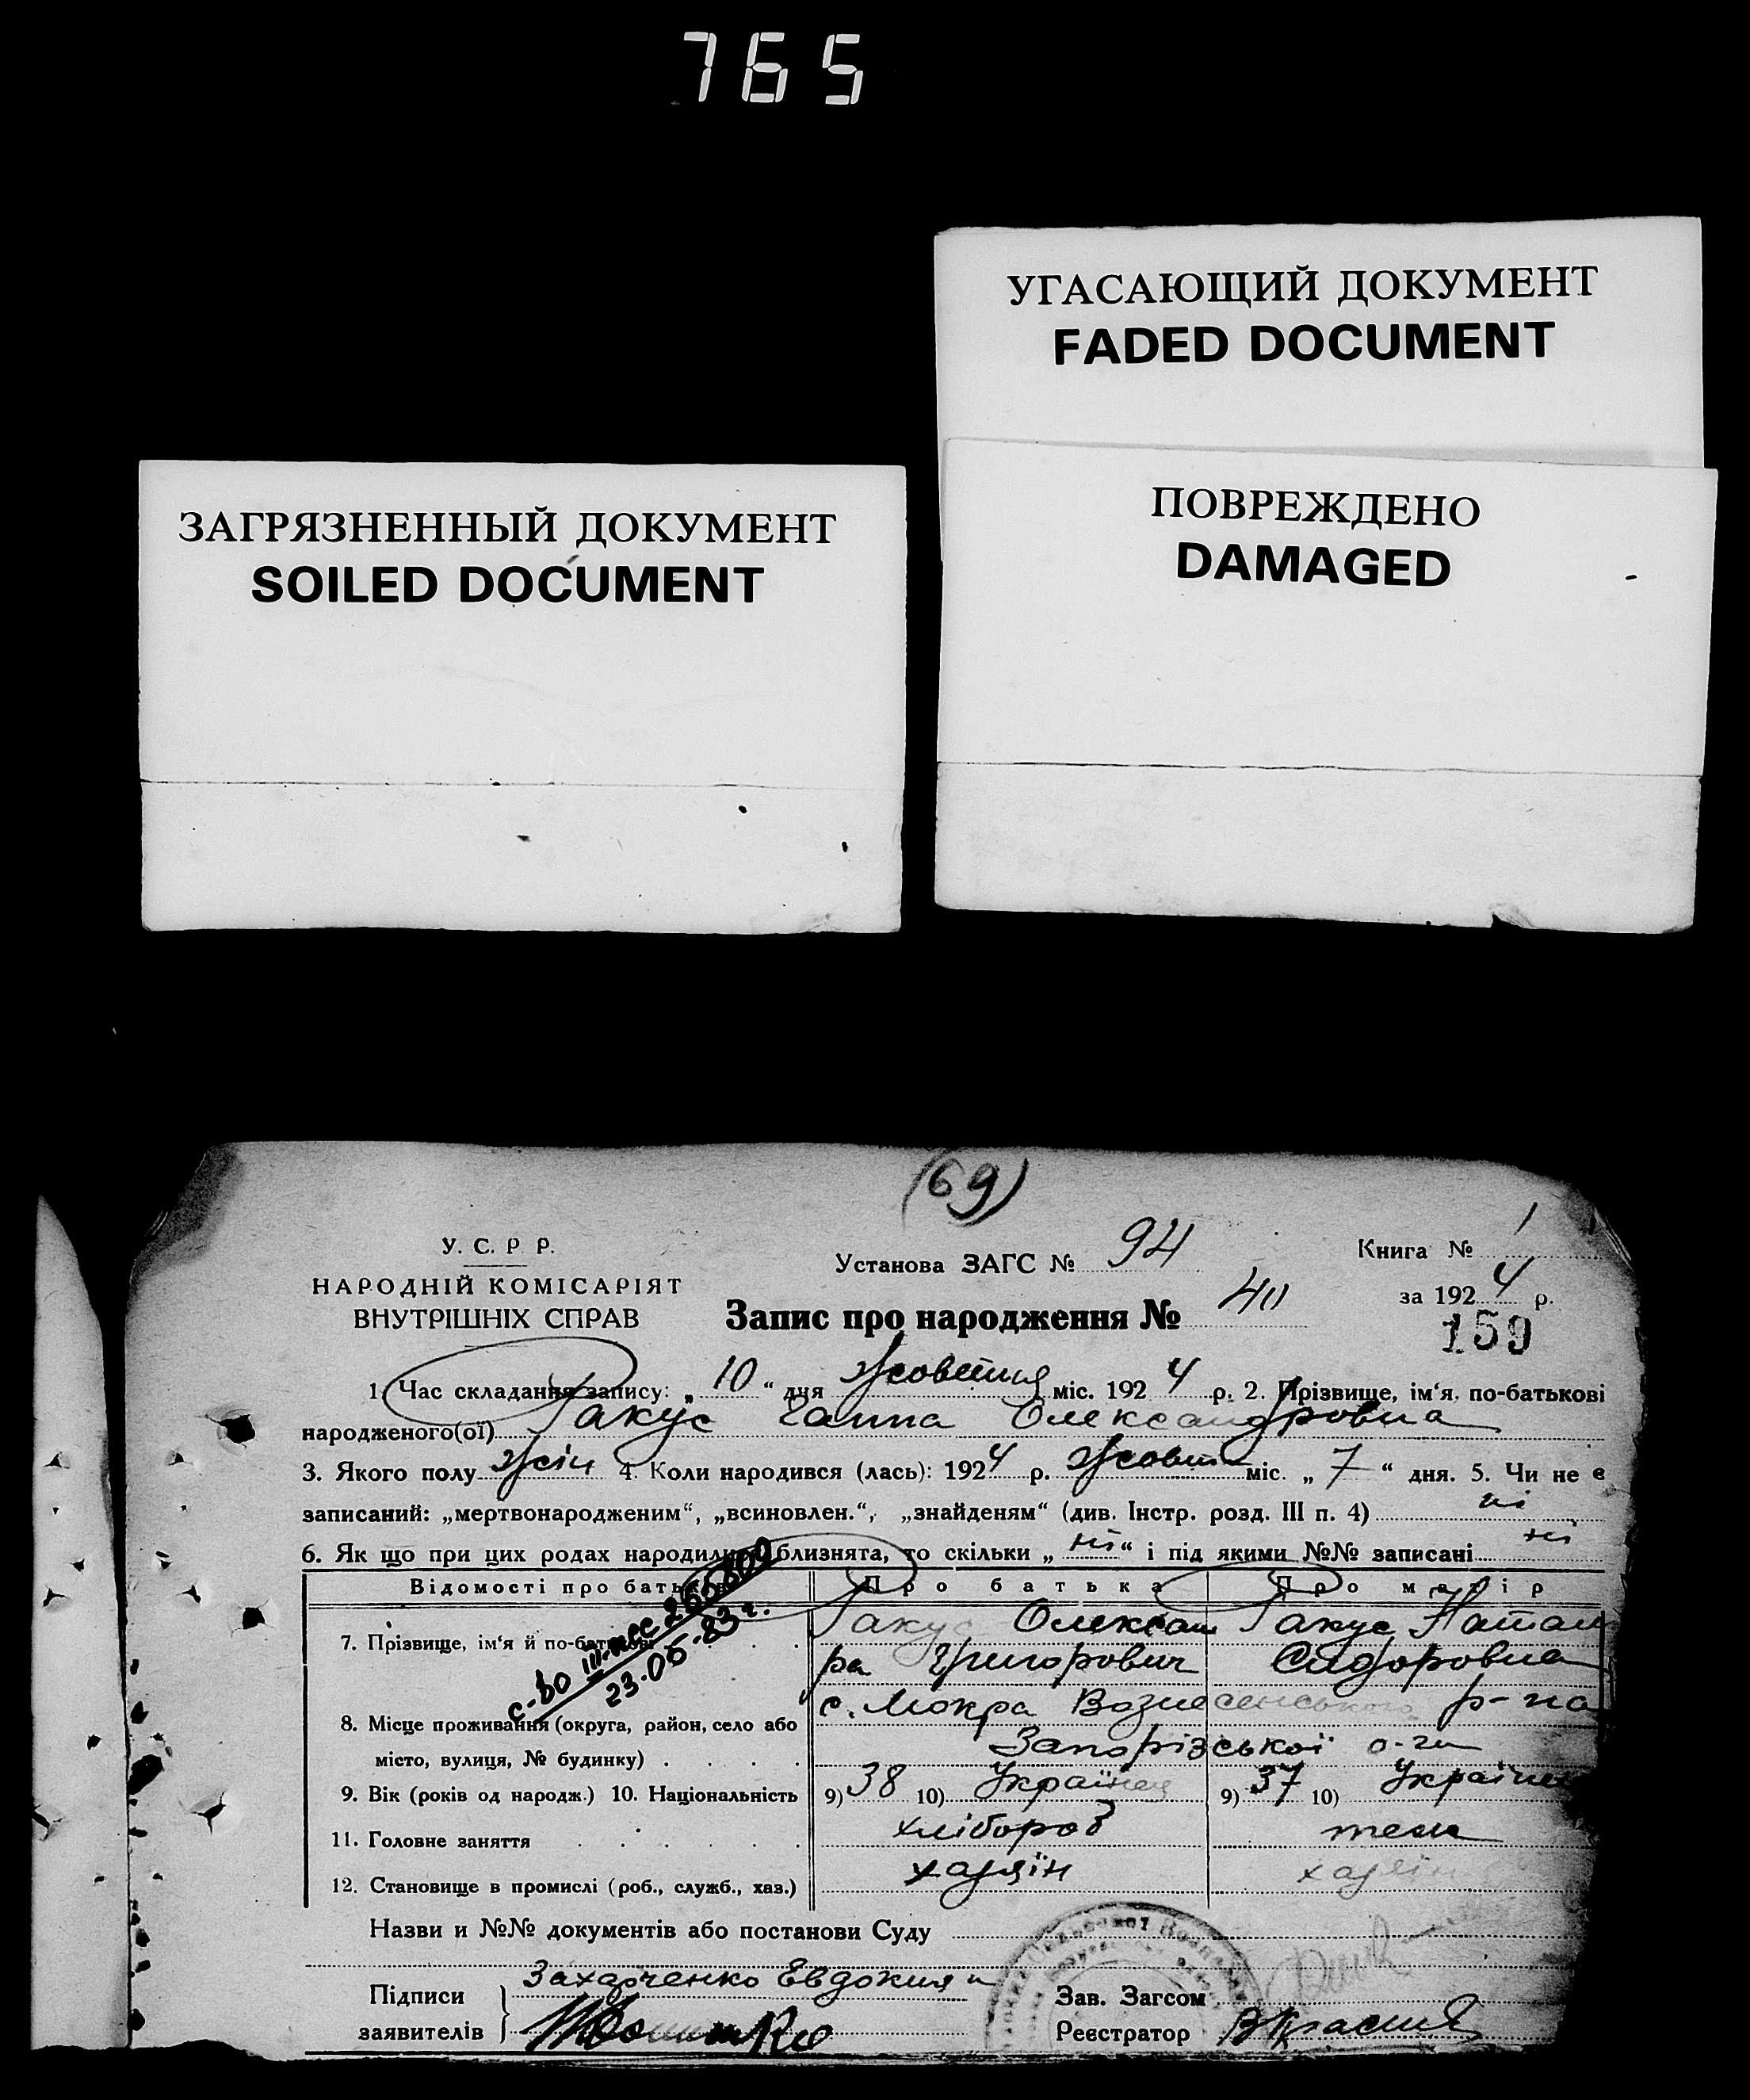 765
УГАСАЮЩИЙ ДОКУМЕНТ
FADED DOCUMENT
ЗАГРЯЗНЕННЫЙ ДОКУМЕНТ
SOILED DOCUMENT
ПОВРЕЖДЕНО
DAMAGED
(69)
У. С. Р Р.
НАРОДНІЙ КОМІСАРІЯТ
ВНУТРІШНІХ СПРАВ
Установа ЗАГС № 94
Книга № 1
за 1924 р.
Запис про народження № 40
159
1. Час складання запису: „ 10 “ дня Жовтня міс. 1924 р. 2. Прізвище, ім‘я, по-батькові
народженого(ої) Гакус Ганна Олександровна
3. Якого полу жін 4. Коли народився (лась): 1924 р. Жовт міс. „ 7 “ дня. 5. Чи не є
записаний: „мертвонародженим“, „всиновлен.“, „знайденям“ (див. Інстр. розд. III п. 4) ні
6. Як що при цих родах народились близнята, то скільки „ ні “ і під якими №№ записані ні
Відомості про батьків Про батька Про матір
7. Прізвище, ім‘я й по-батькові Гакус Олексан Гакус Натал
ра Григорович Сидоровна
с-во III-
23-05-83 г.
8. Місце проживання (округа, район, село або с. Мокра Вознесенського р-на
місто, вулиця, № будинку) Запорізської о-ги
9. Вік (років од народж.) 10. Національність 9) 38 10) Українец 9) 37 10) Україн
11. Головне заняття хлібороб теж
12. Становище в промислі (роб., служб., хаз.) хазяїн хазяїн
Назви и №№ документів або постанови Суду
Підписи
заявителів
Захарченко Евдокия и
Зав. Загсом
Реєстратор